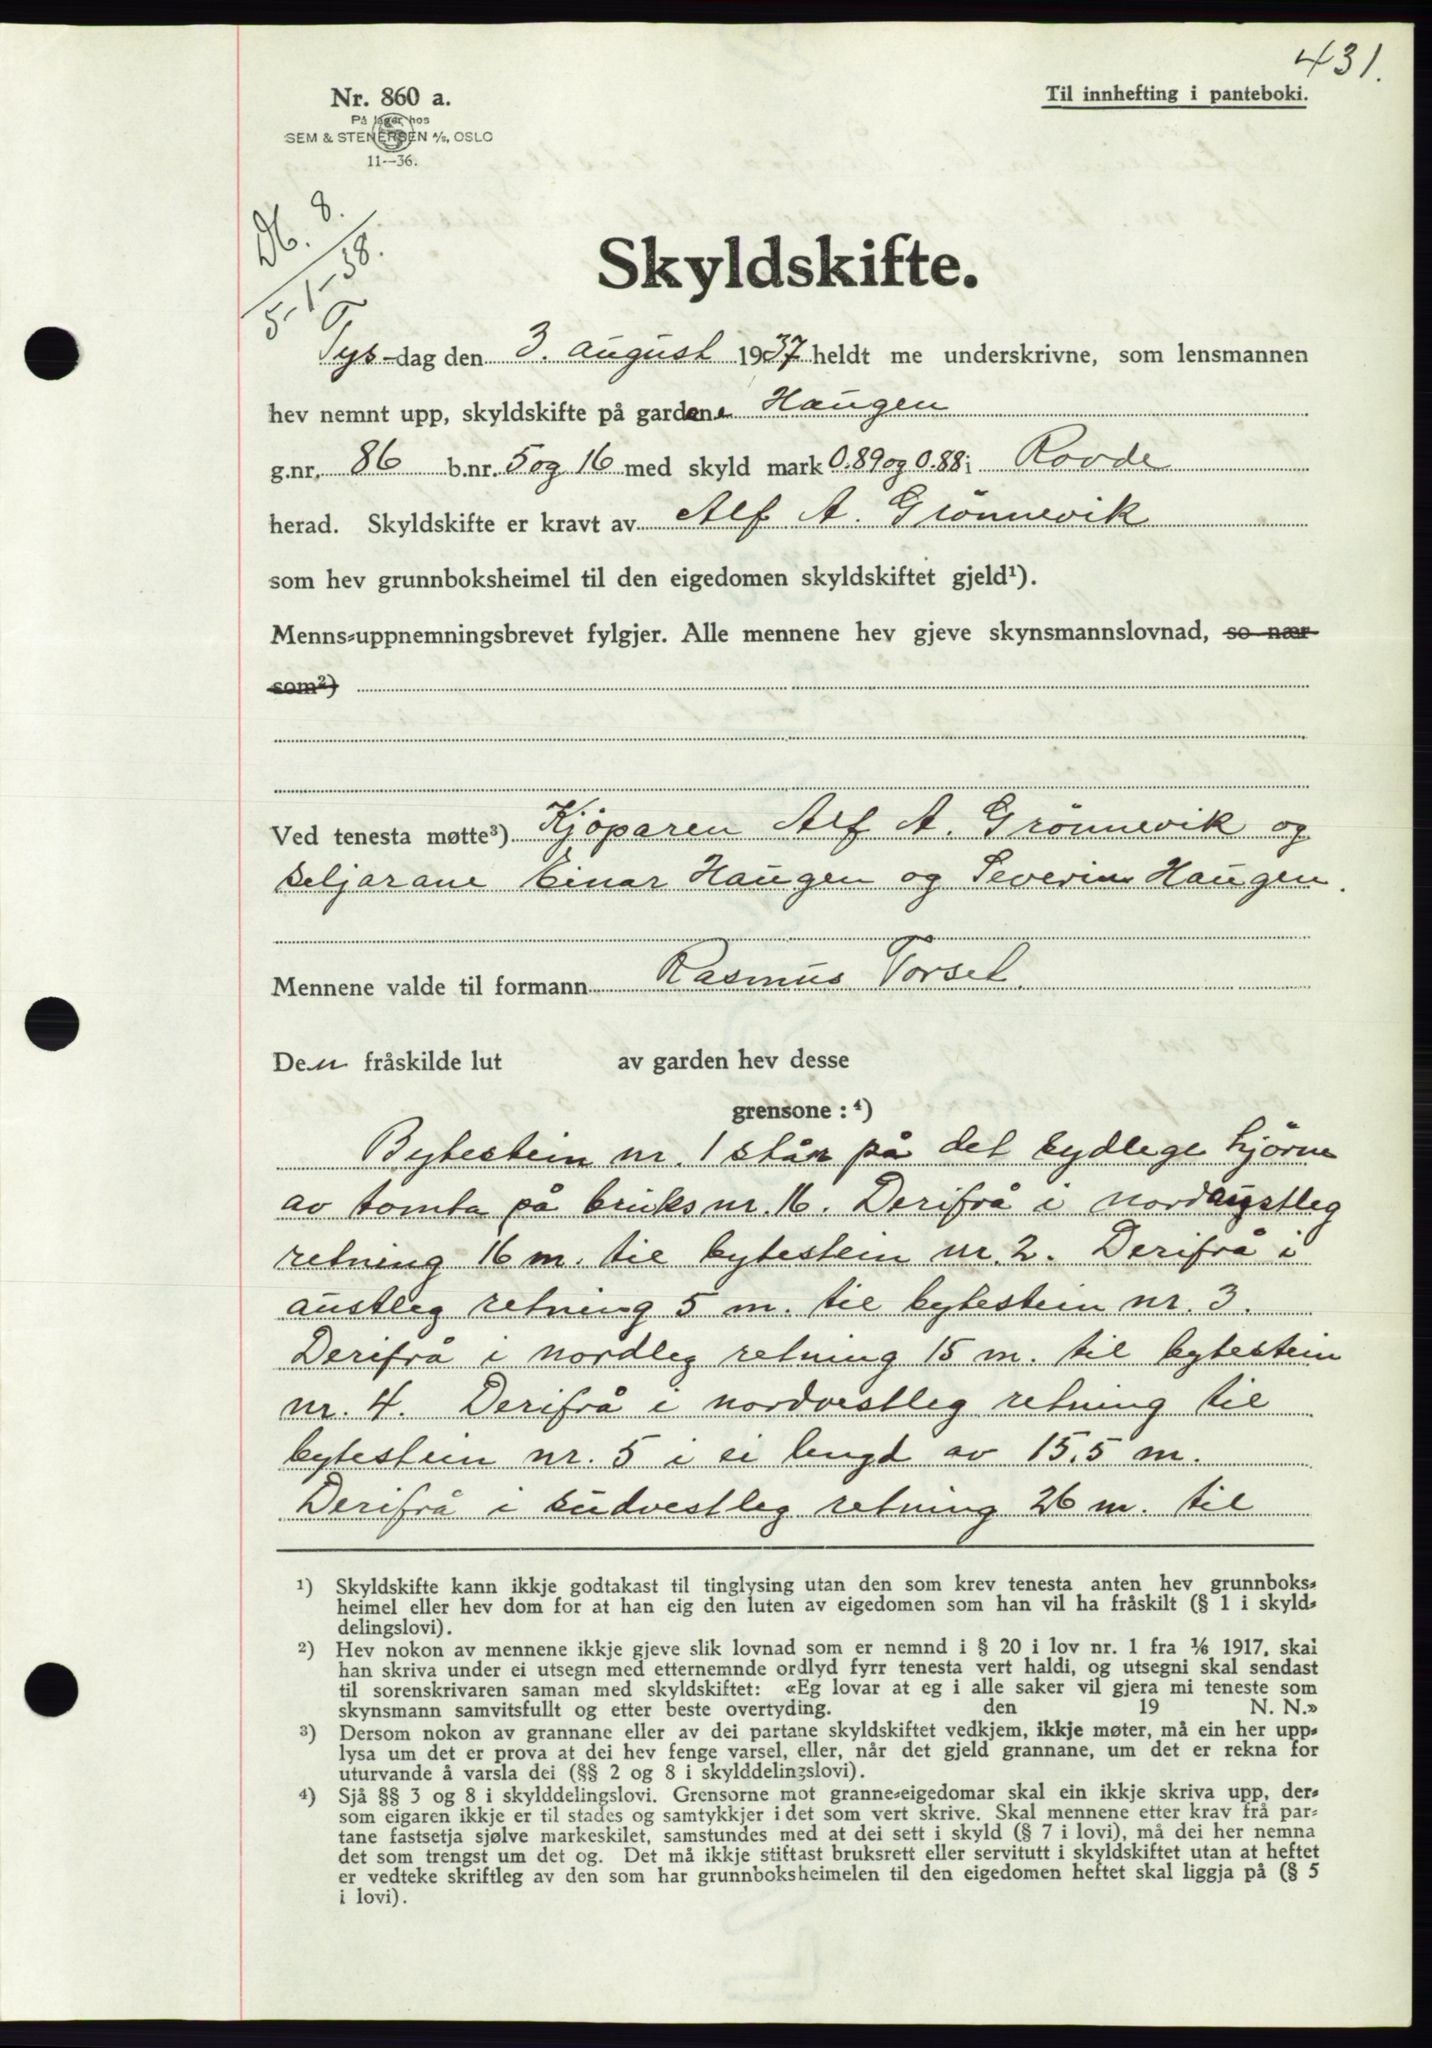 431.
Nr. 860 a.
På lager hos
SEM & STENERSEN A/S, OSLO
11--36.
Til innhefting i panteboki.
Db. 8.
5-1-38.
Skyldskifte.
Tys-dag den 3. august 1937 heldt me underskrivne, som lensmannen
hev nemnt upp, skyldskifte på gardane Haugen
g.nr. 86 b.nr. 5 og 16 med skyld mark 0.89 og 0.88 i Rovde
herad. Skyldskifte er kravt av Alf A. Grönnevik
som hev grunnboksheimel til den eigedomen skyldskiftet gjeld¹).
Menns-uppnemningsbrevet fylgjer. Alle mennene hev gjeve skynsmannslovnad, so nær
som²)
Ved tenesta møtte³) Kjöparen Alf A. Grönnevik og
seljarane Einar Haugen og Severin Haugen.
Mennene valde til formann Rasmus Torset.
Den fråskilde lut av garden hev desse
grensone: ⁴)
Bytestein nr. 1 står på det sydlege hjörne
av tomta på bruksnr. 16. Derifrå i nordaustleg
retning 16 m. til bytestein nr. 2. Derifrå i
austleg retning 5 m. til bytestein nr. 3.
Derifrå i nordleg retning 15 m. til bytestein
nr. 4. Derifrå i nordvestleg retning til
bytestein nr. 5 i ei lengd av 15,5 m.
Derifrå i sudvestleg retning 26 m. til
¹) Skyldskifte kann ikkje godtakast til tinglysing utan den som krev tenesta anten hev grunnboks-
heimel eller hev dom for at han eig den luten av eigedomen som han vil ha fråskilt (§ 1 i skyld-
delingslovi).
²) Hev nokon av mennene ikkje gjeve slik lovnad som er nemnd i § 20 i lov nr. 1 fra 1/6 1917, skal
han skriva under ei utsegn med etternemnde ordlyd fyrr tenesta vert haldi, og utsegni skal sendast
til sorenskrivaren saman med skyldskiftet: «Eg lovar at eg i alle saker vil gjera mi teneste som
skynsmann samvitsfullt og etter beste overtyding. den 19 N. N.»
³) Dersom nokon av grannane eller av dei partane skyldskiftet vedkjem, ikkje møter, må ein her upp-
lysa um det er prova at dei hev fenge varsel, eller, når det gjeld grannane, um det er rekna for
uturvande å varsla dei (§§ 2 og 8 i skylddelingslovi).
⁴) Sjå §§ 3 og 8 i skylddelingslovi. Grensorne mot granne-eigedomar skal ein ikkje skriva upp, der-
som eigaren ikkje er til stades og samtykkjer i det som vert skrive. Skal mennene etter krav frå par-
tane fastsetja sjølve markeskilet, samstundes med at dei sett i skyld (§ 7 i lovi), må dei her nemna
det som trengst um det og. Det må ikkje stiftast bruksrett eller servitutt i skyldskiftet utan at heftet
er vedteke skriftleg av den som har grunnboksheimelen til den eigedomen heftet skal liggja på (§ 5
i lovi).